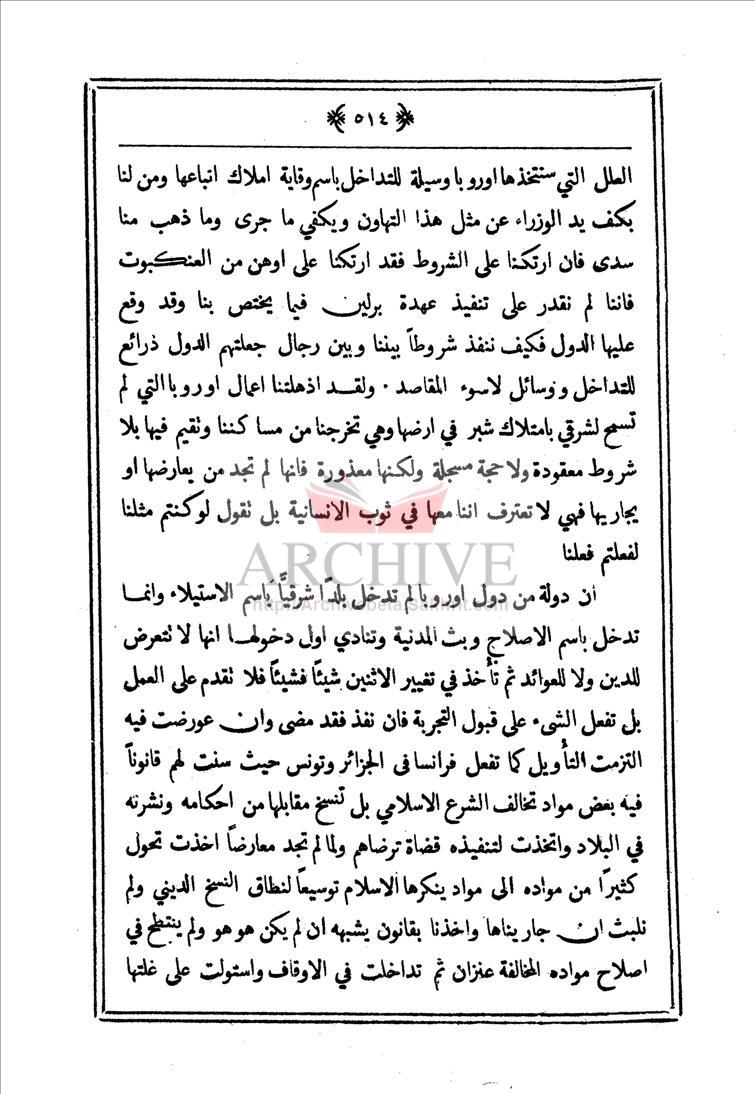 ﴿ ٥١٤ ﴾
العلل التي ستتخذها اوروبا وسيلة للتداخل باسم وقاية املاك اتباعها ومن لنا
بكف يد الوزراء عن مثل هذا التهاون ويكفي ما جرى وما ذهب منا
سدى فان ارتكنا على الشروط فقد ارتكنا على اوهن من العنكبوت
فاننا لم نقدر على تنفيذ عهدة برلين فيما يختص بنا وقد وقع
عليها الدول فكيف ننفذ شروطاً بيننا وبين رجال جعلتهم الدول ذرائع
للتداخل ووسائل لاسوء المقاصد . ولقد اذهلتنا اعمال اوروبا التي لم
تسمح لشرقي بامتلاك شبر في ارضها وهي تخرجنا من مساكننا وتقيم فيها بلا
شروط معقودة ولا حجة مسجلة ولكنها معذورة فانها لم تجد من يعارضها او
يجاريها فهي لا تعترف اننا معها في ثوب الانسانية بل تقول لو كنتم مثلنا
لفعلتم فعلنا
ARCHIVE
ان دولة من دول اوروبا لم تدخل بلدًا شرقيًّا باسم الاستيلاء وانما
تدخل باسم الاصلاح وبث المدنية وتنادي اول دخولها انها لا تتعرض
للدين ولا للعوائد ثم تأخذ في تغيير الاثنين شيئاً فشيئاً فلا تقدم على العمل
بل تفعل الشيء على قبول التجربة فان نفذ فقد مضى وان عورضت فيه
التزمت التأويل كما تفعل فرانسا في الجزائر وتونس حيث سنت لهم قانوناً
فيه بعض مواد تخالف الشرع الاسلامي بل تنسخ مقابلها من احكامه ونشرته
في البلاد واتخذت لتنفيذه قضاة ترضاهم ولما لم تجد معارضاً اخذت تحول
كثيرًا من مواده الى مواد ينكرها الاسلام توسيعاً لنطاق النسخ الديني ولم
نلبث ان جاريناها واخذنا بقانون يشبهه ان لم يكن هو هو ولم ينتطح في
اصلاح مواده المخالفة عنزان ثم تداخلت في الاوقاف واستولت على غلتها